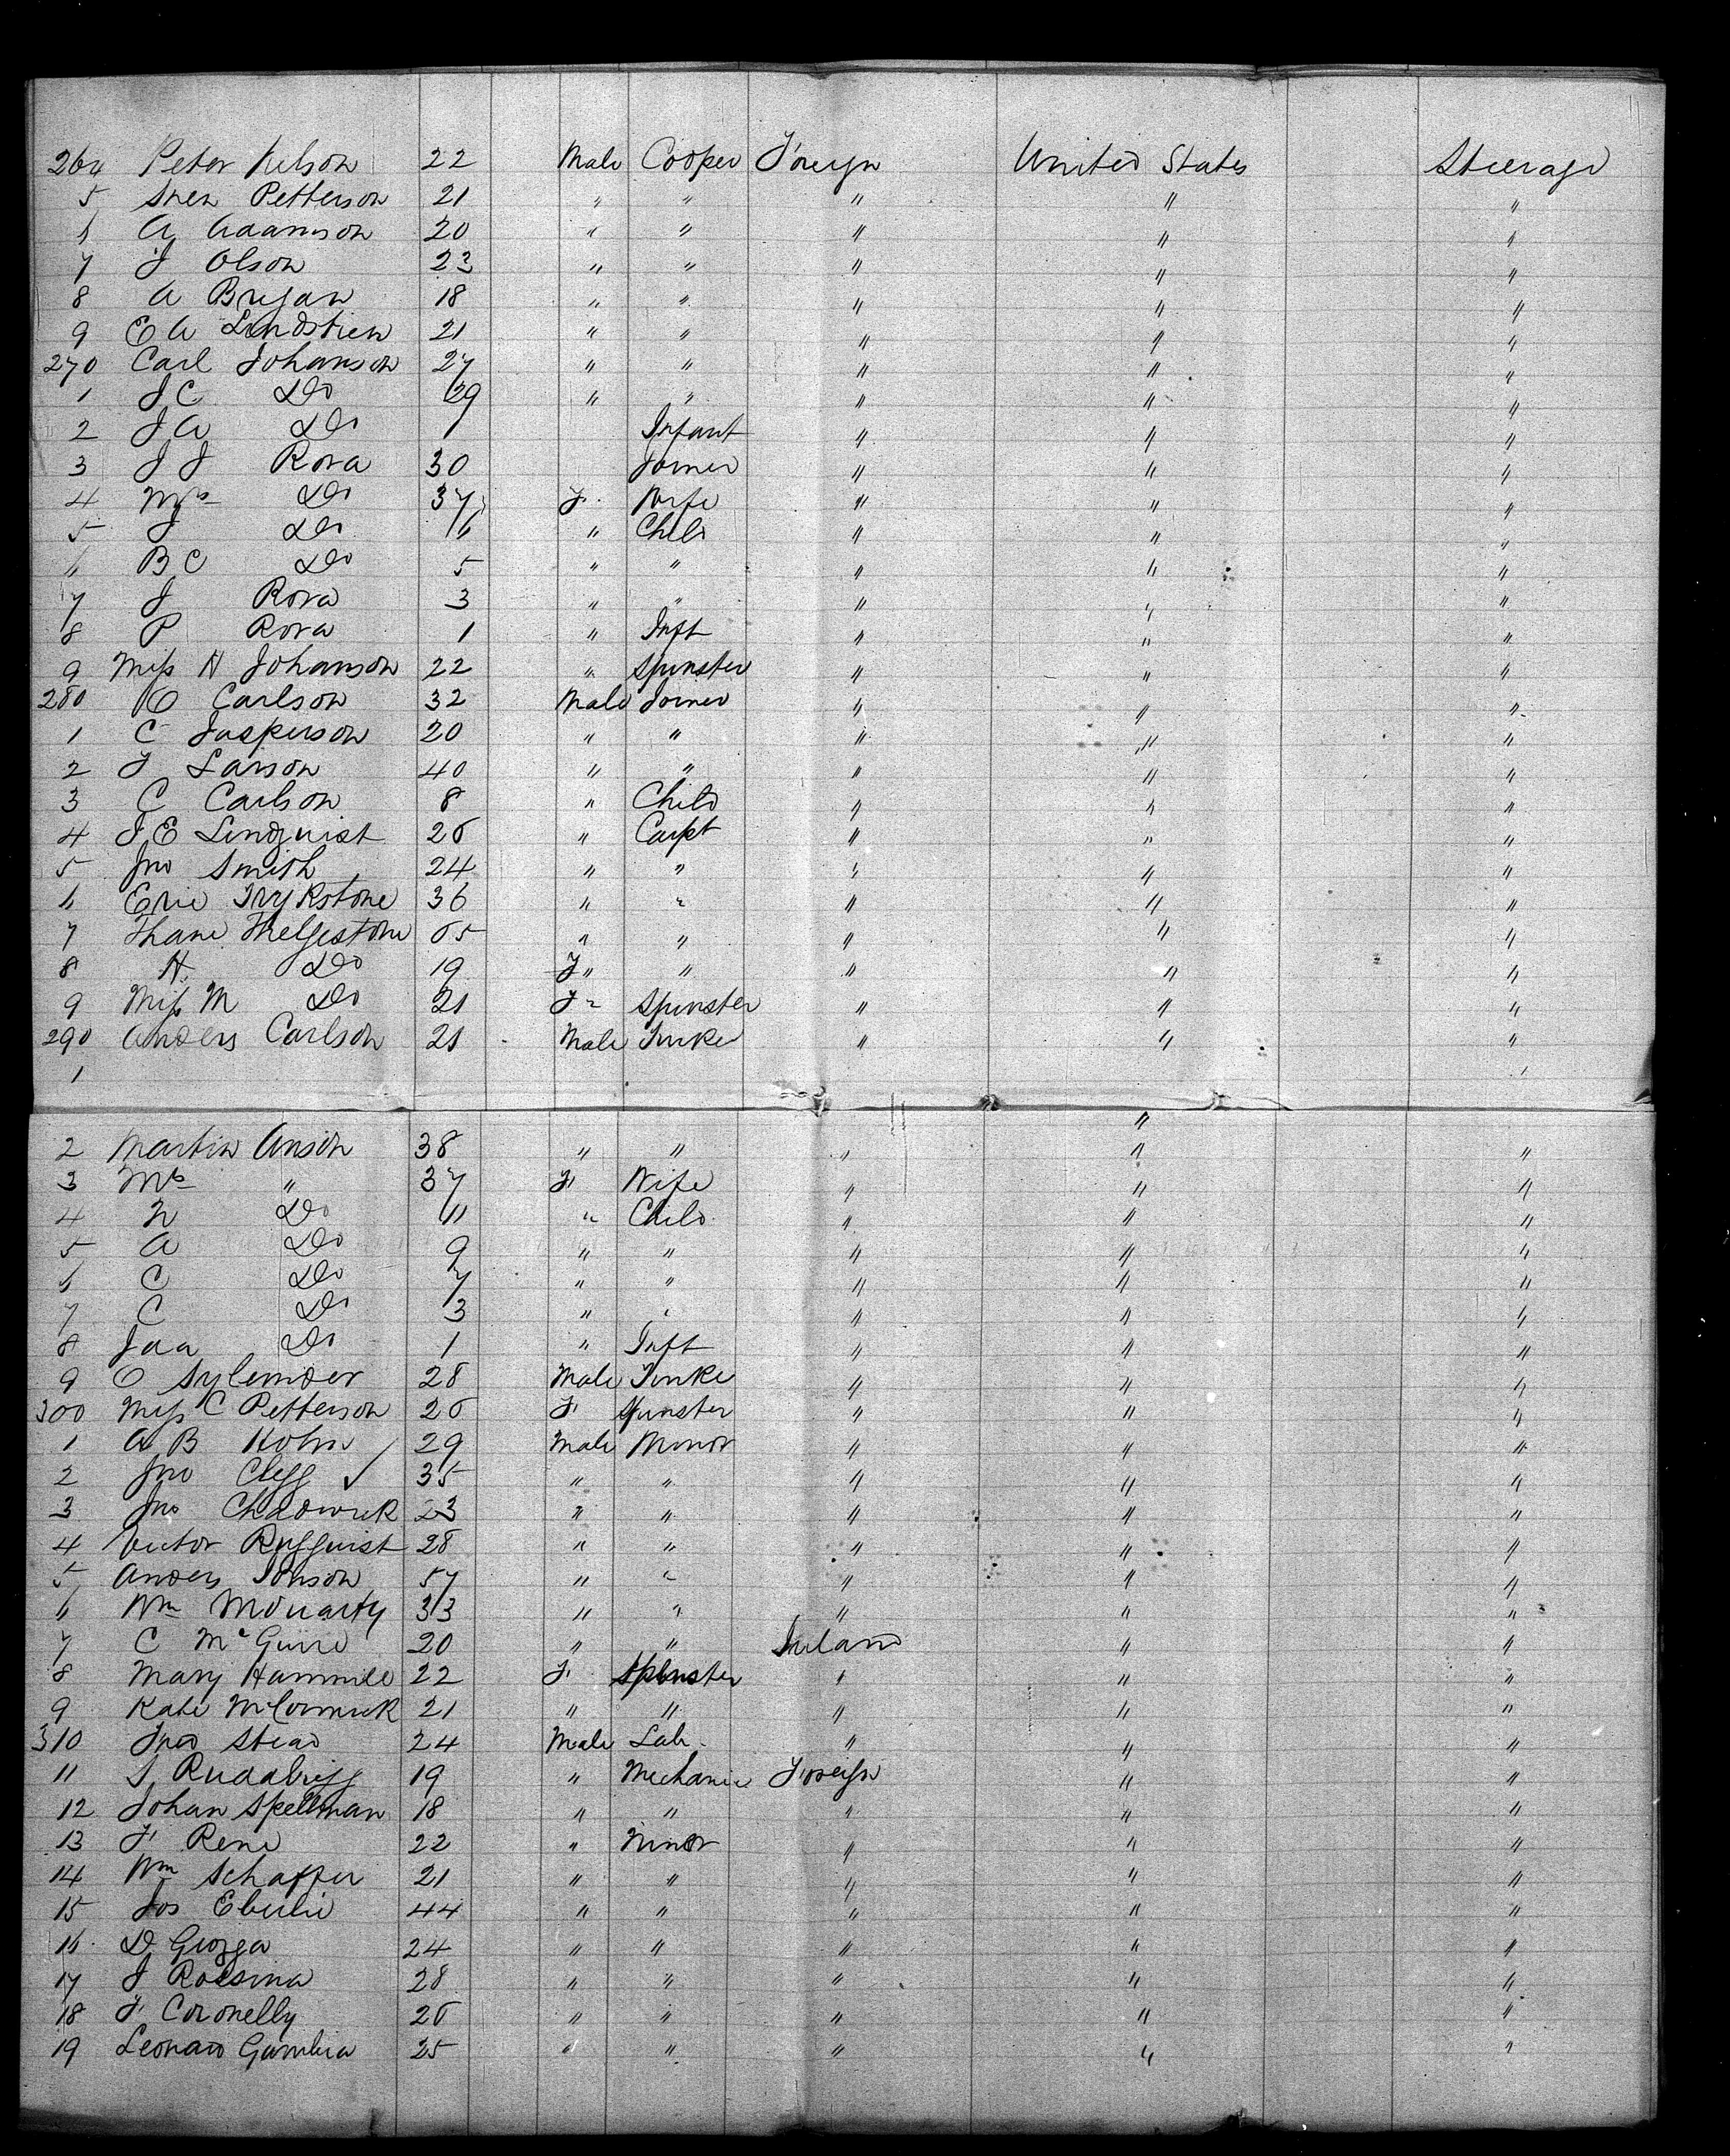 264 Peter Nelson 22 Male Cooper Foreign United States Steerage
5 Sven Petterson 21 " " " " "
6 A Adamson 20 " " " " "
7 J Olson 23 " " " " "
8 A Bryan 18 " " " " "
9 E A Lindstien 21 " " " " "
270 Carl Johanson 27 " " " " "
1 J C Do 29 " " " " "
2 J A Do 1 Infant " " "
3 J J Rova 30 Joiner " " "
4 Mrs Do 37 F. Wife " " "
5 J Do 6 " Child " " "
6 B C Do 5 " " " " "
7 J Rova 3 " " " " "
8 P Rova 1 " Inft " " "
9 Miss H Johanson 22 " Spinster " " "
280 O Carlson 32 Male Joiner " " "
1 C Jasperson 20 " " " " "
2 J Larson 40 " " " " "
3 C Carlson 8 " Child " " "
4 J E Linquist 26 " Carpt " " "
5 Jno Smith 24 " " " " "
6 Eric Trykstone 36 " " " " "
7 Thane Thelgestone 65 " " " " "
8 H Do 19 F " " " " "
9 Miss M Do 21 F " Spinster " " "
290 Anders Carlson 21 Male Tinker " " "
1 "
2 Martin Anson 38 " " " " "
3 Mrs " 37 F. Wife " " "
4 N Do 11 " Child " " "
5 A Do 9 " " " " "
6 C Do 7 " " " " "
7 C Do 3 " " " " "
8 Ida Do 1 " Inft " " "
9 O Sylemder 28 Male Tinke " " "
300 Miss C Petterson 26 F. Spinster " " "
1 A B Hohn 29 Male Minor " " "
2 Jno Clegg ✓ 35 " " " " "
3 Jno Chadwick 23 " " " " "
4 Victor Rygquist 28 " " " " "
5 Anders Jonson 57 " " " " "
6 Wm Moriarty 33 " " " " "
7 C McGuire 20 " " Ireland " "
8 Mary Hammill 22 F. Spinster " " "
9 Kate McCormick 21 " " " " "
310 Fred Stead 24 Male Lab. " " "
11 S Ruddbrigg 19 " Mechanic Foreign " "
12 Johan Spellman 18 " " " " "
13 F. Rene 22 " Minor " " "
14 Wm Schaffer 21 " " " " "
15 Jos Eberlie 44 " " " " "
16 D Giogga 24 " " " " "
17 J Rossina 28 " " " " "
18 F. Coronelly 26 " " " " "
19 Leonard Gambia 25 " " " " "